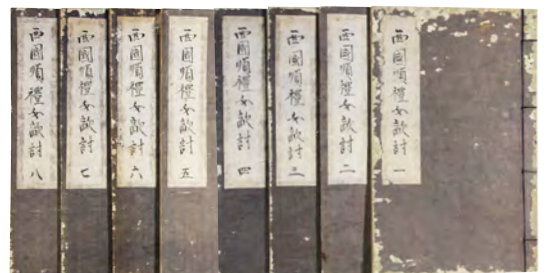 西國順禮女敵討 一
西國順禮女敵討 二
西國順禮女敵討 三
西國順禮女敵討 四
西國順禮女敵討 五
西國順禮女敵討 六
西國順禮女敵討 七
西國順禮女敵討 八